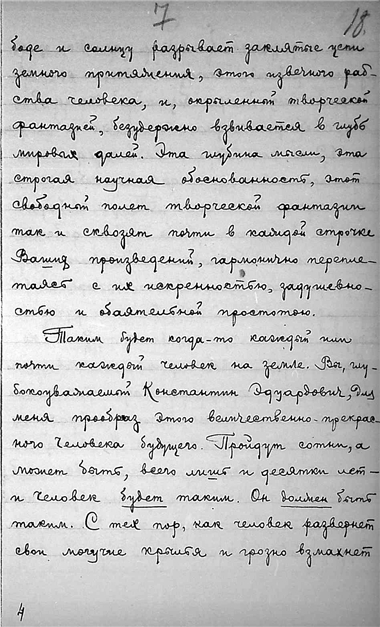 7
18.
боде и солнцу разрывает заклятые цепи
земного притяжения, этого извечного раб-
ства человека, и, окрыленной творческой
фантазией, безудержно взвивается в глубь
мировых далей. Эта глубина мысли, эта
строгая научная обоснованность, этот
свободной полет творческой фантазии
так и сквозят почти в каждой строчке
Ваших произведений, гармонично перепле-
таясь с их искренностью, задушевно-
стью и обаятельной простотою.
Таким будет когда-то каждый или
почти каждый человек на земле. Вы, глу-
бокоуважаемой Константин Эдуардович, для
меня прообраз этого величественно-прекрас-
ного Человека будущего. Пройдут сотни, а
может быть, всего лишь и десятки лет-
и человек будет таким. Он должен быть
таким. С тех пор, как человек развернет
свои могучие крылья и грозно взмахнет
4